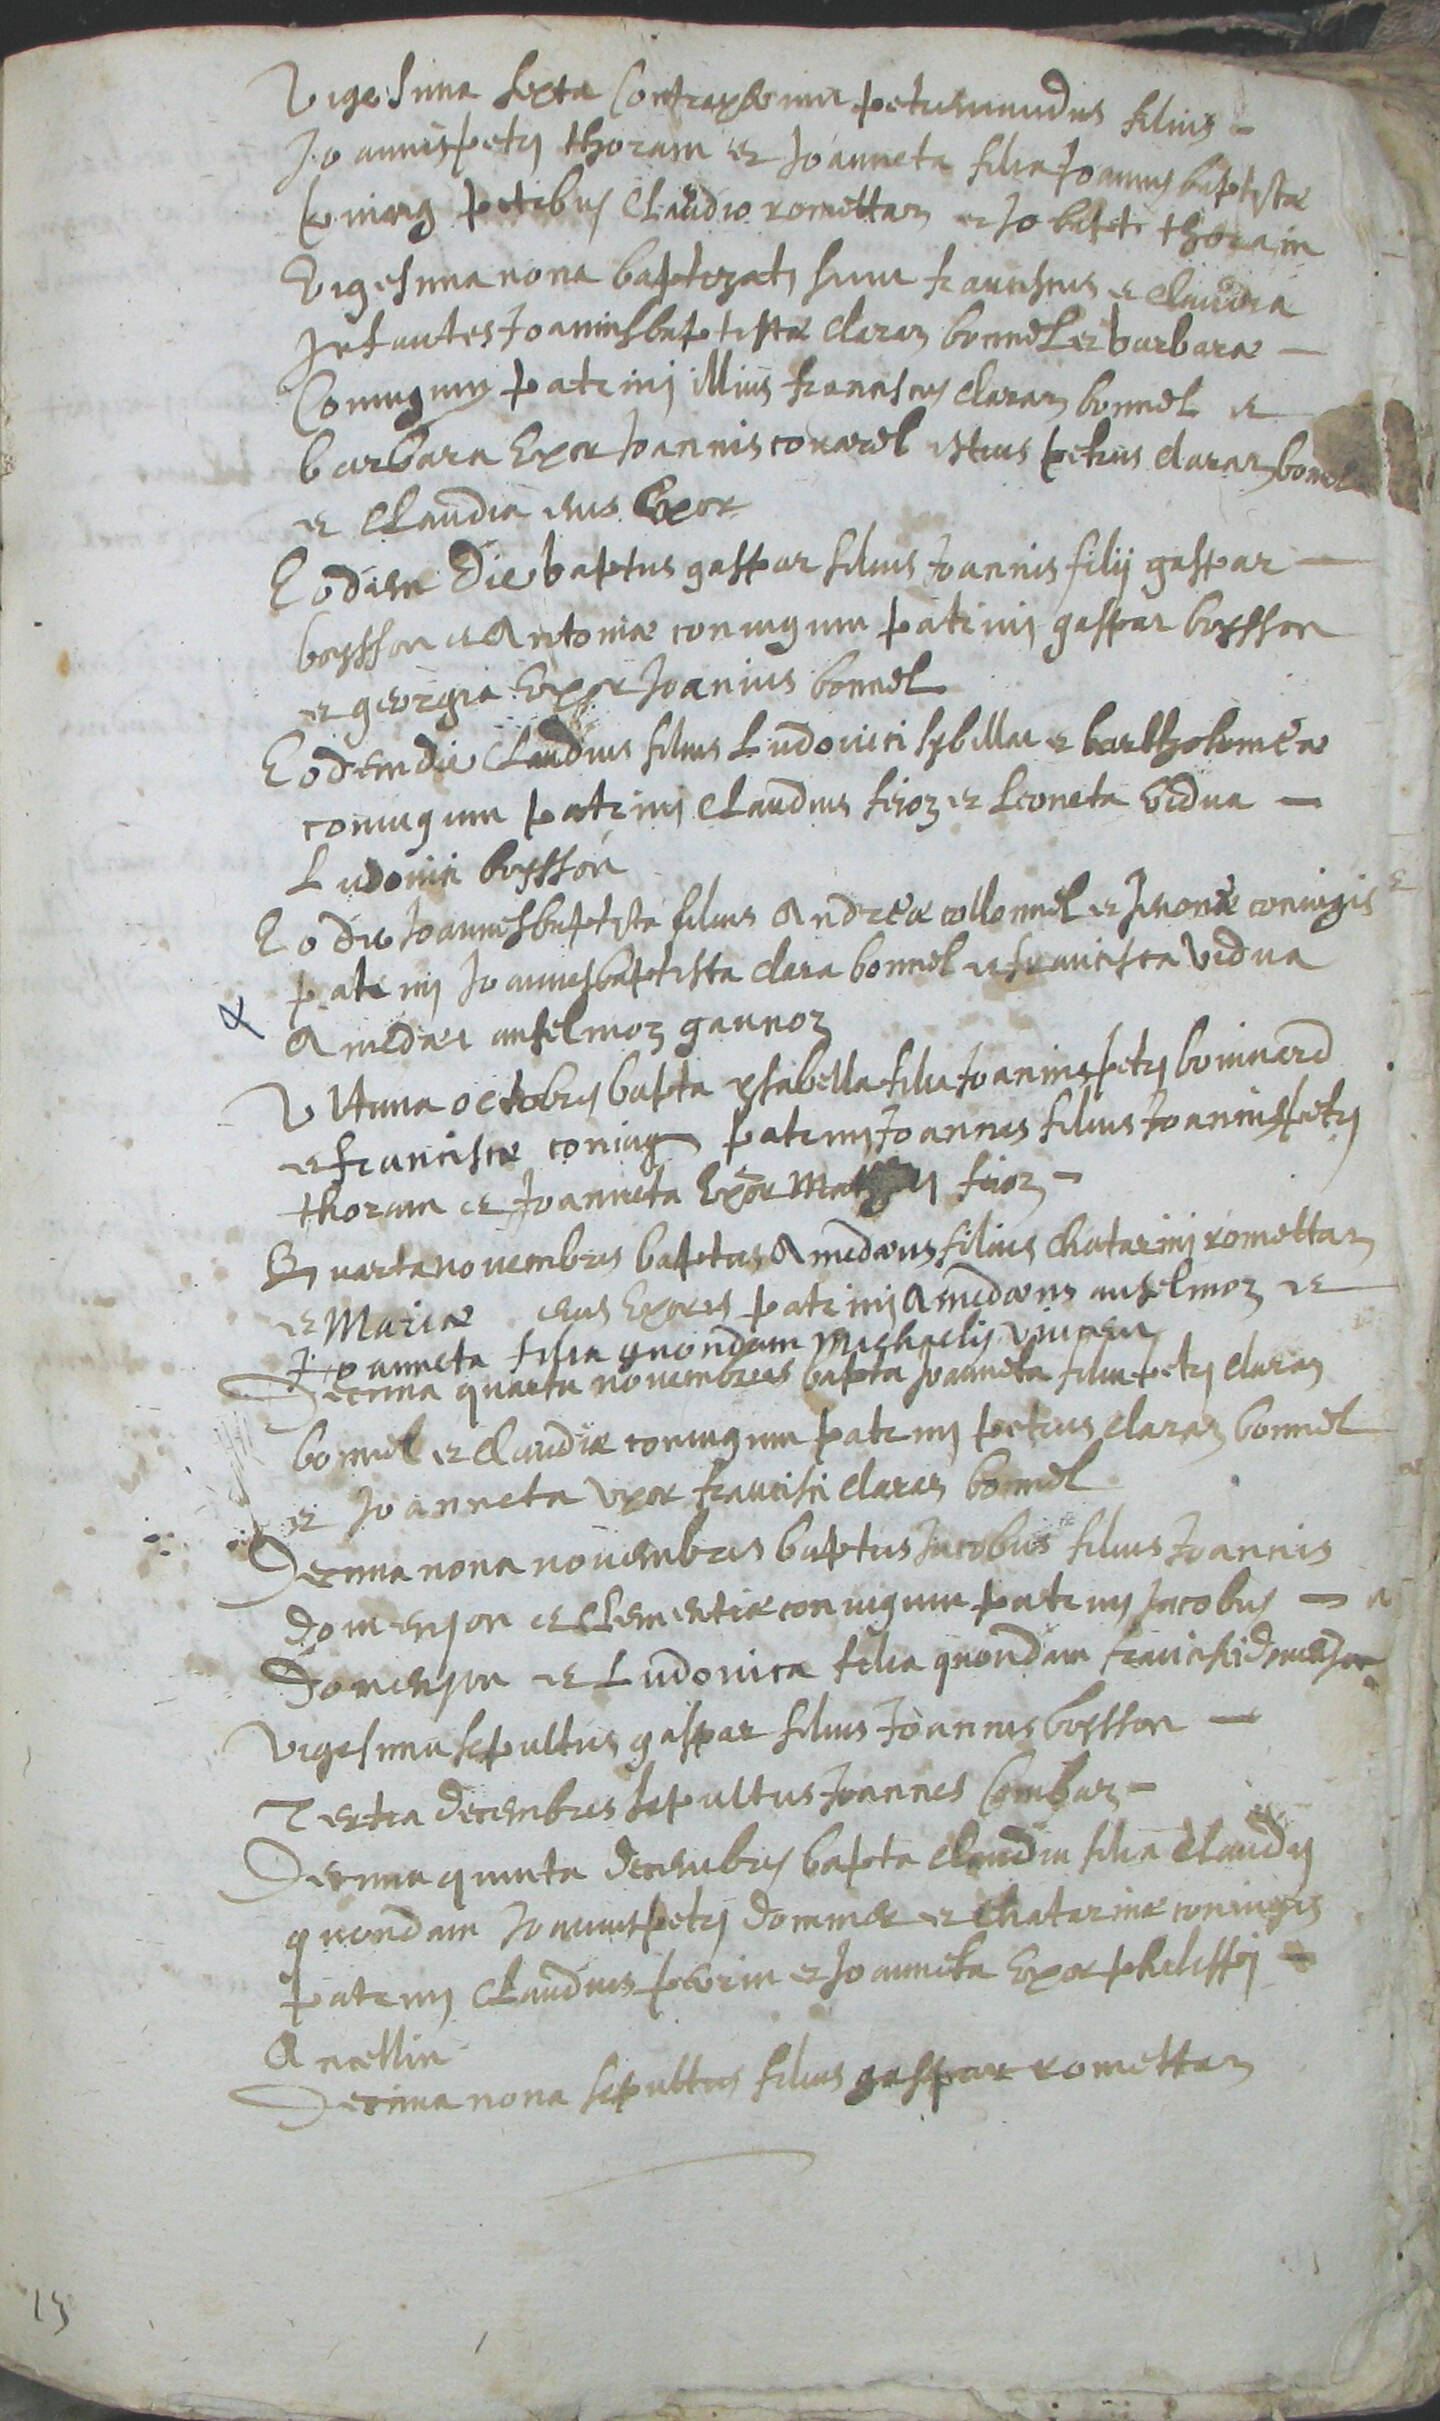 Vigesima sexta Contraxerunt petrus nudus filius -
Joannispetrj thoram et Joanneta filia Joannis baptistæ
ptibus Claudio romettaz et Jo bapte thoram
Vigesima nona baptizatj sunt franciscus et claudia
Infantes Joannisbaptistæ claraz bonnel et barbaræ -
Coniugum patrinj illius franciscus claraz bonnel et
barbara Exor Joannis conardel istius petrus claraz bonnel
et Claudia eius Exor
Eodem die baptus gaspar filius Joannis filij gaspar -
boysson et Antoniæ coniugum patrinj gaspar boysson
et georgia Exor Joannis bonnel
Eodem die Claudius filius Ludovici sybillaz et bartholomeæ
coniugum patrinj Claudius feioz et Leoneta vidua -
Ludovici boysson
Eo die Joannesbaptista filius Andreæ collonnel et coniugis
patrinj Joannesbaptista clara bonnel et francisca vidua
Amedæi anselmoz gaunoz
Ultima octobris bapta ysabella filia Joannispetrj boinuerd
et franciscæ coniug patrinj Joannes filius Joannispetrj
thoram et Joanneta Exor feioz -
Quarta novembris baptus Amedæus filius Chatarinj romettaz
et Mariæ eius Exoris patrinj Amedæus anselmoz et
Joanneta filia quondam Michaelis
Decima quarta novembris bapta Joanneta filia petrj claraz
bonnel et Claudiæ coniugum patrinj petrus claraz bonnel
et Joanneta vxor francisci claraz bonnel
Decima nona novembris baptus Jacobus filius Joannis
domenjon et Clementiæ coniugum patrinj Jacobus -
Domenjon et Ludovica filia quondam francisci domenjon
Vigesima sepultus gaspar filius Joannis boysson -
Tertia decembris sepultus Joannes Combaz -
Decima quinta decembris bapta Claudia filia Claudij
quondam Joannispetrj et Chatarinæ coniugis
patrinj Claudius perrin et Joanneta Exor phelippj -
Ancellin
Decima nona sepultus filius gaspar romettaz
15